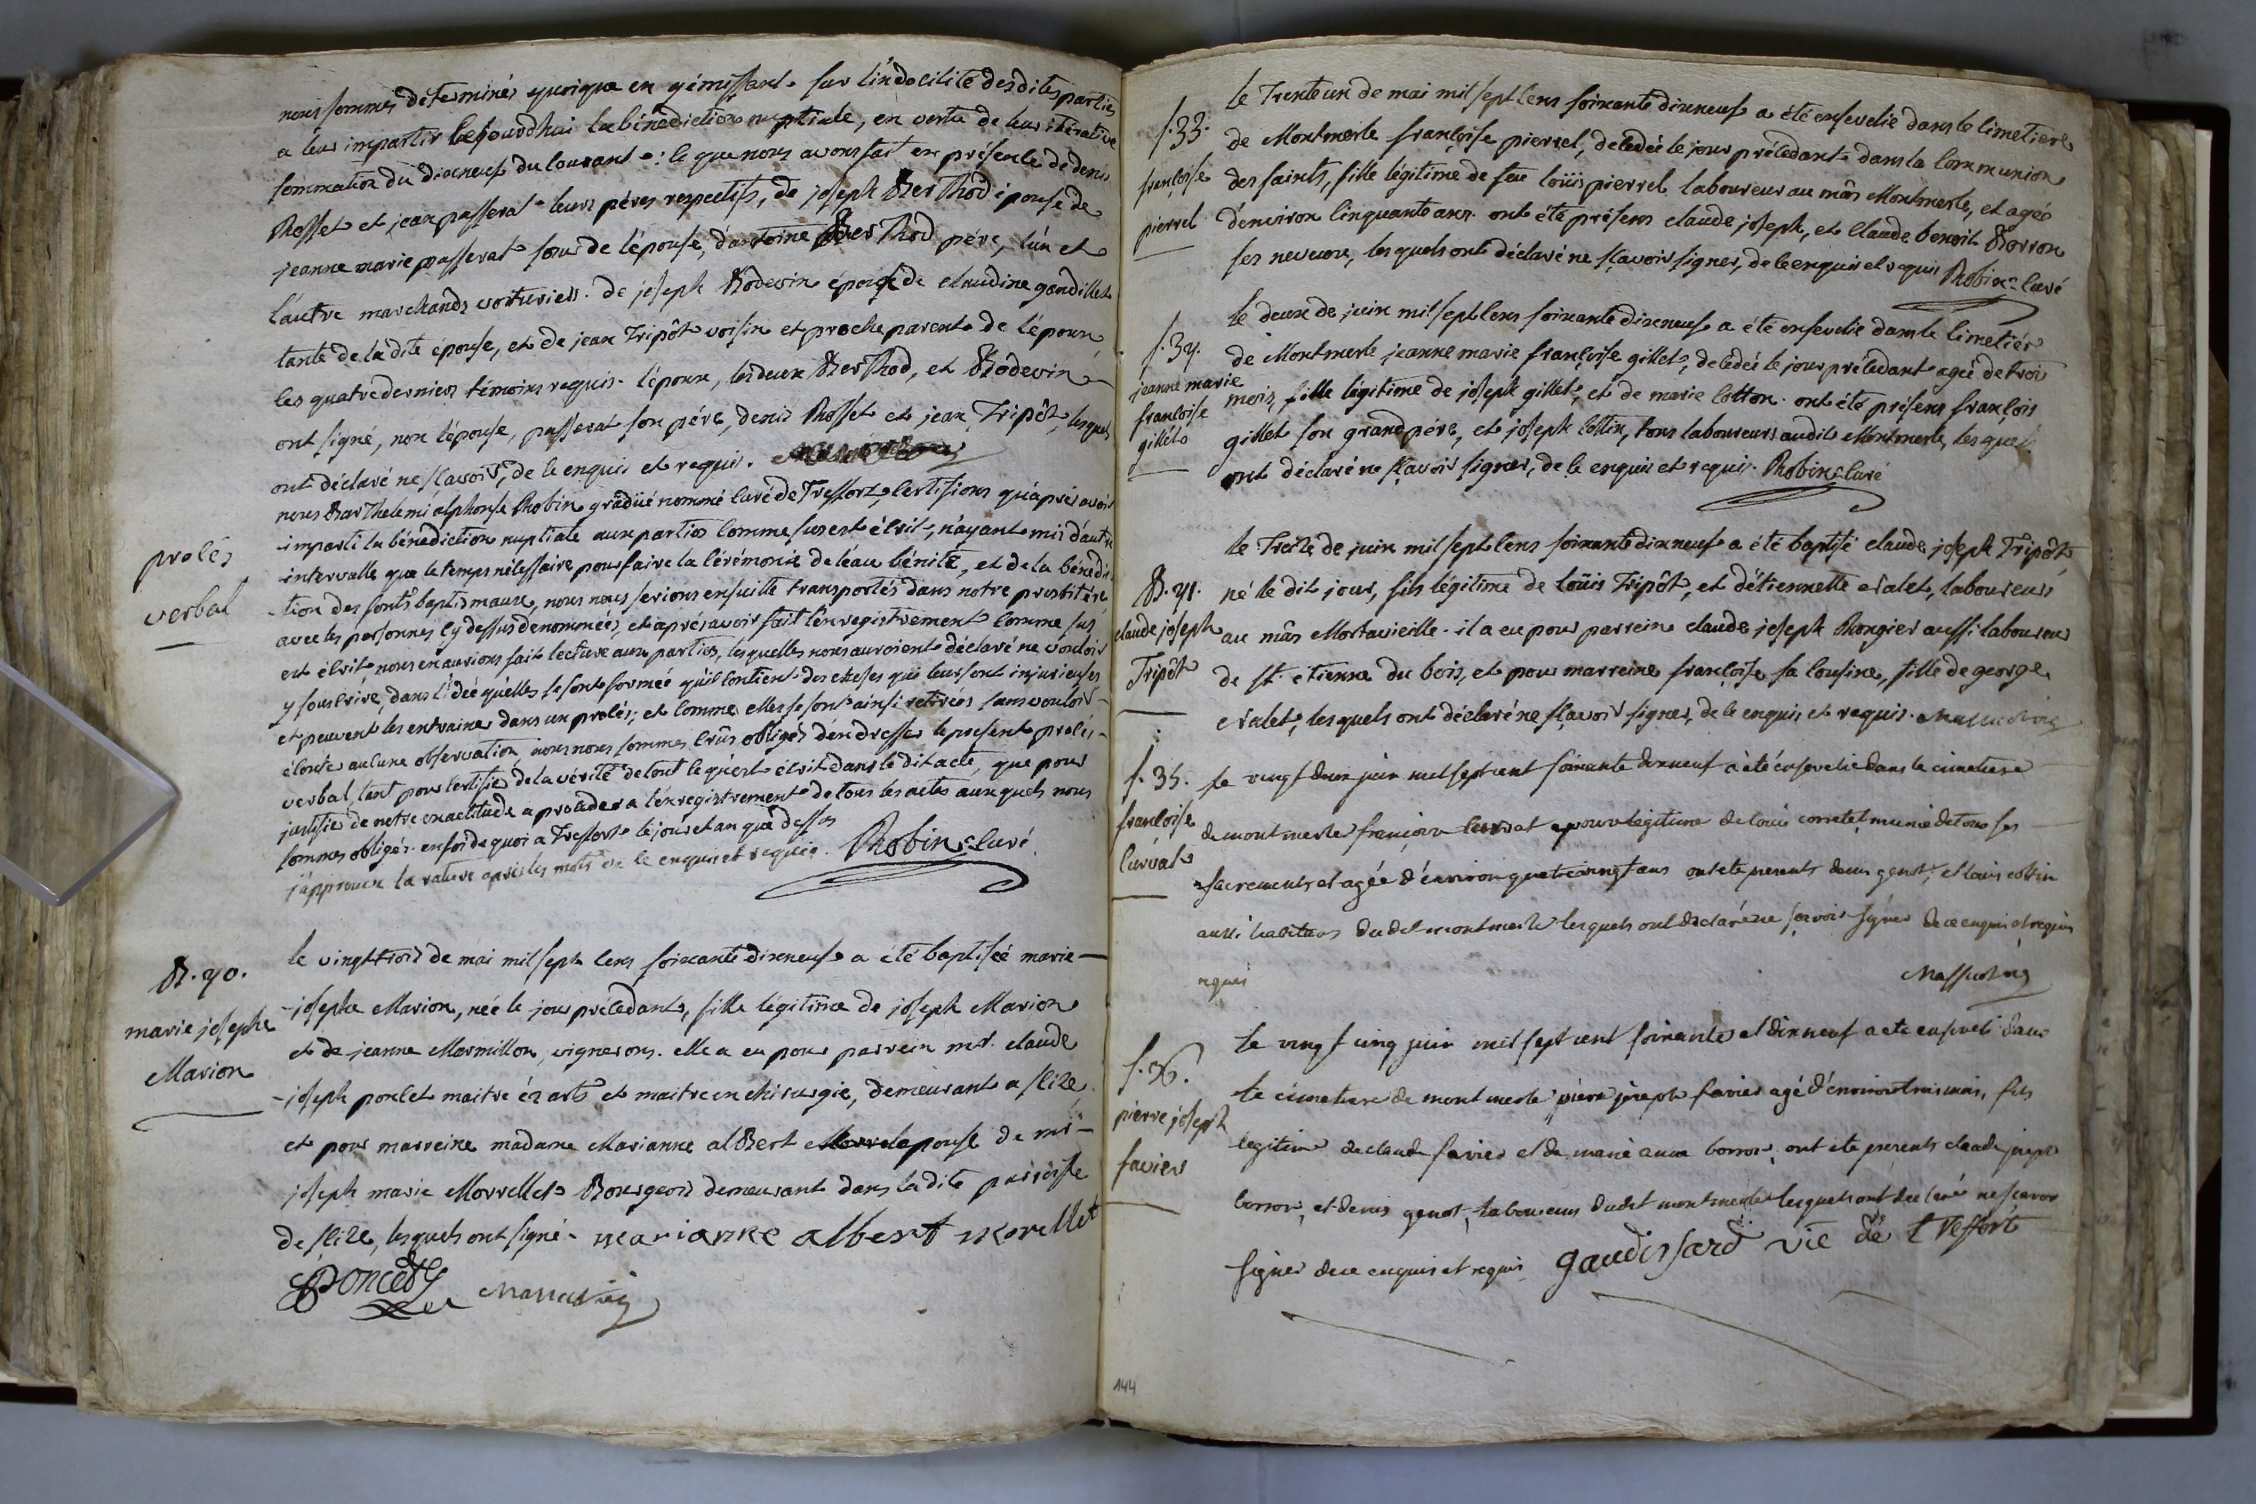 nous sommes determinés quoique en gémissant sur l'indocilité desdites parties
a leur impartir cejourdhui la bénédiction nuptiale, en vertu de leur itérative
sommation du dixneuf du courant : ce que nous avons fait en présence de denis
Rosset et jean passerat leurs péres respectifs, de joseph Berthod epouse de
jeanne marie passerat sœur de l'épouse, d'antoine Berthod pére, l'un et
l'autre marchands voituriers. de joseph Bodevin époux de claudine gandillet
tante de la dite épouse, et de jean Tripôt voisin et proche parent de l'époux,
les quatre derniers témoins requis. l'époux, les deux Berthod, et Bodevin
ont signé, non l'épouse, passerat son pére, denis Rosset et jean Tripôt, lesquels
ont déclaré ne sçavoir, de ce enquis et requis.
nous Barthelemi alphonse Robin gradüé nommé curé de Treffort, certifions qu'aprés avoir
imparti la bénédiction nuptiale aux parties comme sus est écrit, n'ayant mis d'autre
intervalle que le temps nécessaire pour faire la cérémonie de l'eau bénite, et de la bénédic
-tion des fonts baptismaux, nous nous serions ensuitte transportés dans notre presbitére
procés
verbal
avec les personnes cy dessus denommées, et aprés avoir fait l'enregistrement comme sus
est écrit, nous en aurions fait lecture aux parties, lesquelles nous auroient déclaré ne vouloir
y souscrire, dans l'idée qu'elles se sont formée qu'il contient des choses qui leur sont injurieuses
et peuvent les entrainer dans un procés; et comme elles se sont ainsi retirées sans vouloir
écouter aucune observation nous nous sommes crûs obligés d'en dresser le present procés-
verbal, tant pour certifier de la vérité de tout ce qu'est écrit dans le dit acte, que pour
justifier de notre exactitude a proceder a l'enregistrement de tous les actes auxquels nous
sommes obligés. en foi de quoi a Treffort le jour et an que dessus
j'approuve la rature aprés les mots de ce enquis et requis. Robin curé
B. 40.
marie josephe
Marion
le vingttrois de mai mil sept cens soixante dixneuf a été baptisée marie-
-josephe Marion, née le jour précedant, fille légitime de joseph Marion
et de jeanne Mermillon, vignerons. elle a eu pour parrein mr. claude
-joseph poncet maitre éz arts et maitre en chirurgie, demeurant a slize,
et pour marreine madame Marianne alBert epouse de mr-
joseph marie Morrellet Bourgeois demeurant dans la dite parroisse
de slize, lesquels ont signé - marianne albert morellet
Poncet
f. 33.
françoise
pierrel
le Trente un de mai mil sept cens soixante dixneuf a été ensevelie dans le cimetiere
de Montmerle françoise pierrel, decedée le jour précedant dans la communion
des saints, fille légitime de feu loüis pierrel laboureur au mâs Montmerle, et agée
d'environ cinquante ans. ont été présens claude joseph, et claude benoit Borron
ses neveux, lesquels ont déclaré ne sçavoir signer, de ce enquis et requis Robin curé
f. 34.
jeanne marie
françoise
gillet
le deux de juin mil sept cens soixante dixneuf a été ensevelie dans le cimetiér
de Montmerle jeanne marie françoise gillet, decedée le jour précedant agée de trois
mois, fille légitime de joseph gillet, et de marie cotton. ont été présens françois
gillet son grand pére, et joseph cottin, tous laboureurs audit Montmerle, lesquels
ont déclaré ne sçavoir signer, de ce enquis et requis. Robin curé
B. 41.
claude joseph
Tripôt
le Treize de juin mil sept cens soixante dixneuf a été baptisé claude joseph Tripôt,
né le dit jour, fils légitime de loüis Tripôt, et d'étiennette Valet, laboureurs
au mâs Mortavieille. il a eu pour parrein claude joseph Rongier aussi laboureur
de st. etienne du bois, et pour marreine françoise sa cousine, fille de george
Valet, lesquels ont déclaré ne sçavoir signer, de ce enquis et requis.
f. 35.
françoise
curvat
le vingt deux juin mil sept cent soixante dixneuf a été ensevelie dans le cimetiere
de mont merle françoise curvat epouse legitime de louis corretet munie de tous ses
sacrements et agée d'environ quatrevingt ans ont ete presents denis genot, et louis cottin
aussi habitans du dit montmerle lesquels ont declaré ne sçavoir signer de ce enquis et requis
requis
f. 36.
pierre joseph
favier
le vingt cinq juin mil sept cent soixante et dixneuf a ete enseveli dans
le cimetiere de mont merle pierre joseph favier agé d'environ trois mois, fils
legitime de claude favier et de marie anne borron, ont ete presents claude joseph
borron, et denis genot, laboureurs dudit montmerle lesquels ont declaré ne scavoir
signer de ce enquis et requis gaudissard vic de treffort
144